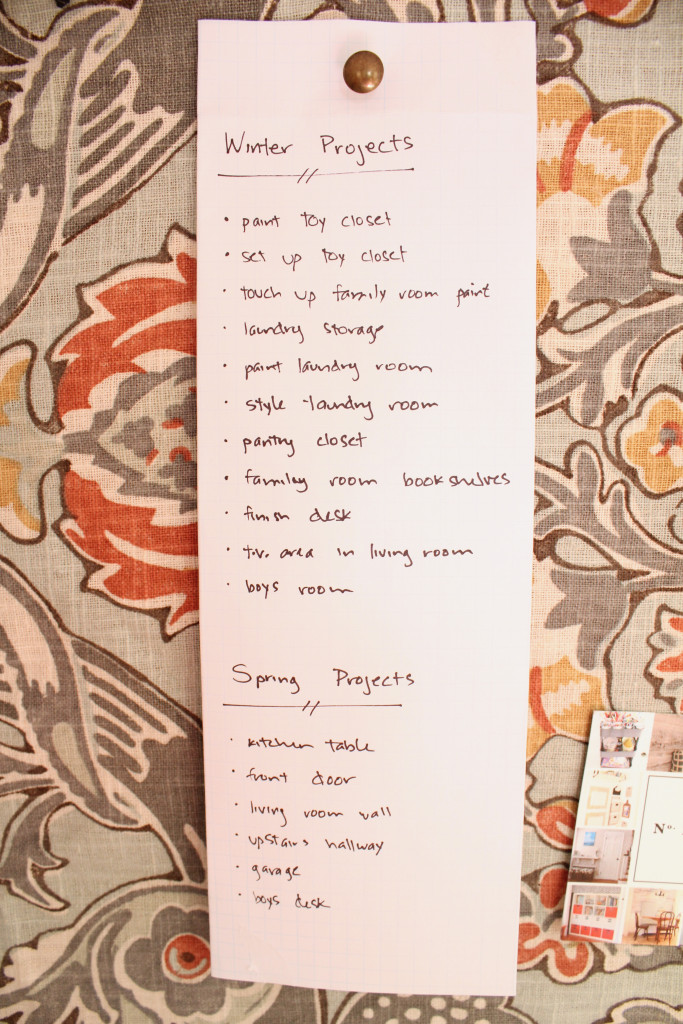 Winter Projects
• paint toy closet
• set up toy closet
• touch up family room paint
• laundry storage
• paint laundry room
• style laundry room
• pantry closet
• family room bookshelves
• finish desk
• t.v. area in living room
• boys room
Spring Projects
• kitchen table
• front door
• living room wall
• upstairs hallway
• garage
• boys desk
No.